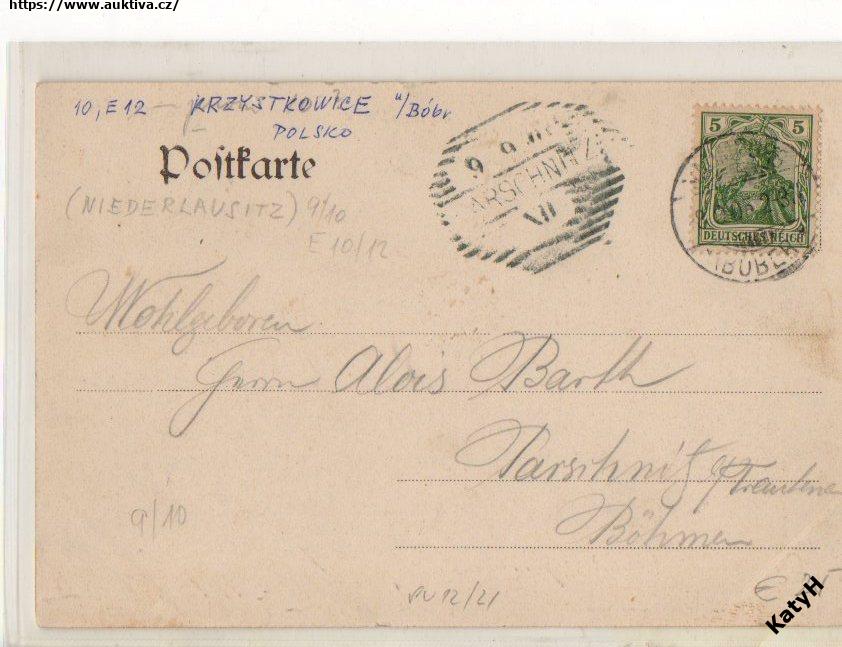 https://www.auktiva.cz/
10, E 12 — KRZYSTKOWICE n/Bóbr
POLSKO
Postkarte
(NIEDERLAUSITZ) 9/10
E 10/12
9 9
ARSCHNITZ
VII
5 5
DEUTSCHES REICH
Wohlgeboren
Herrn Alois Barth
Parschnitz
Böhmen
9/10
12/21
KatyH